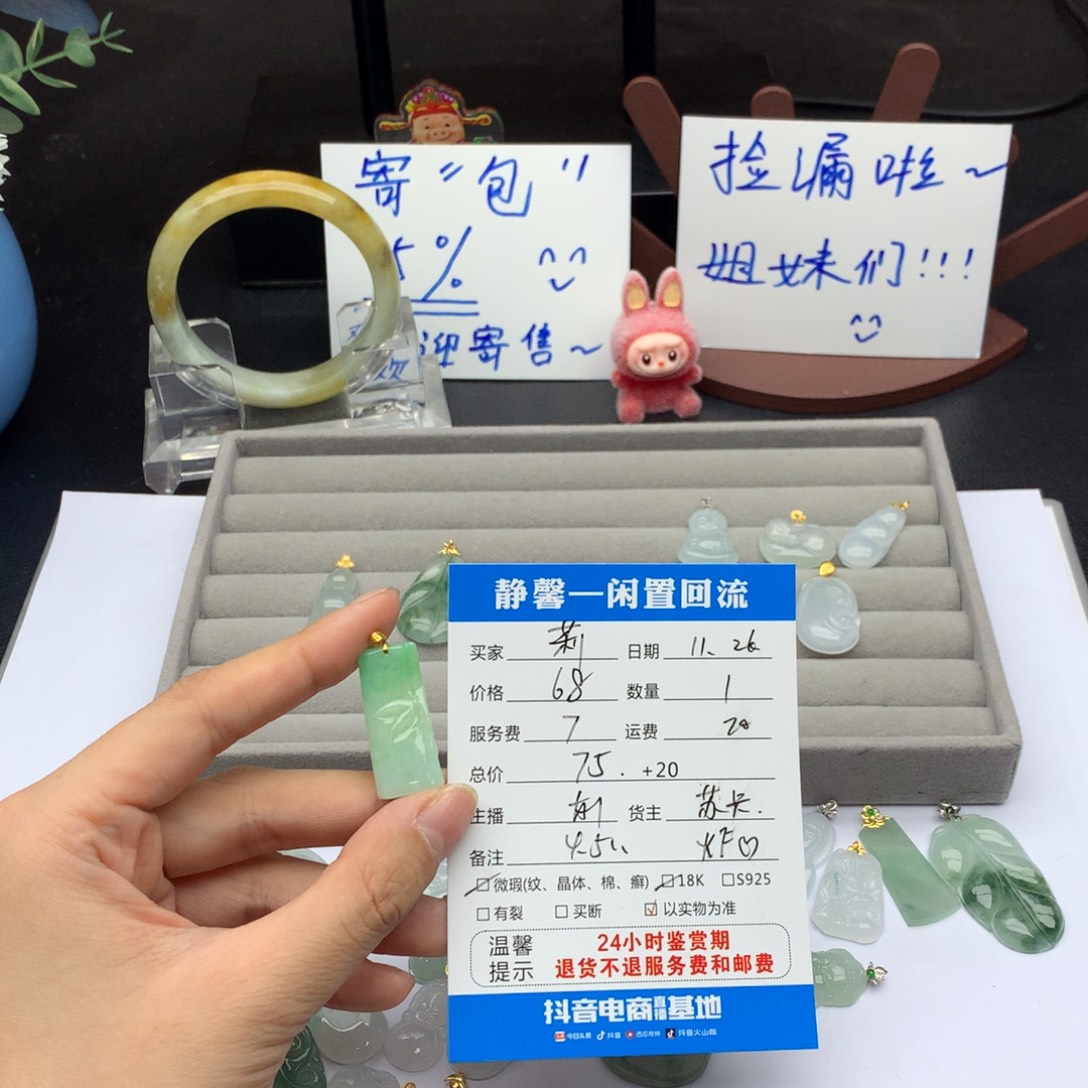 寄"包"
5%
迎寄售~
欢
捡漏啦~
姐妹们!!!
静馨—闲置回流
买家 莉 日期 11.26
价格 68 数量 1
服务费 7 运费 20
总价 75. +20
主播 货主 苏卡.
备注
微瑕(纹、晶体、棉、癣) 18K S925
有裂 买断 以实物为准
温馨提示
24小时鉴赏期
退货不退服务费和邮费
抖音电商直播基地
今日头条 抖音 西瓜视频 抖音火山版